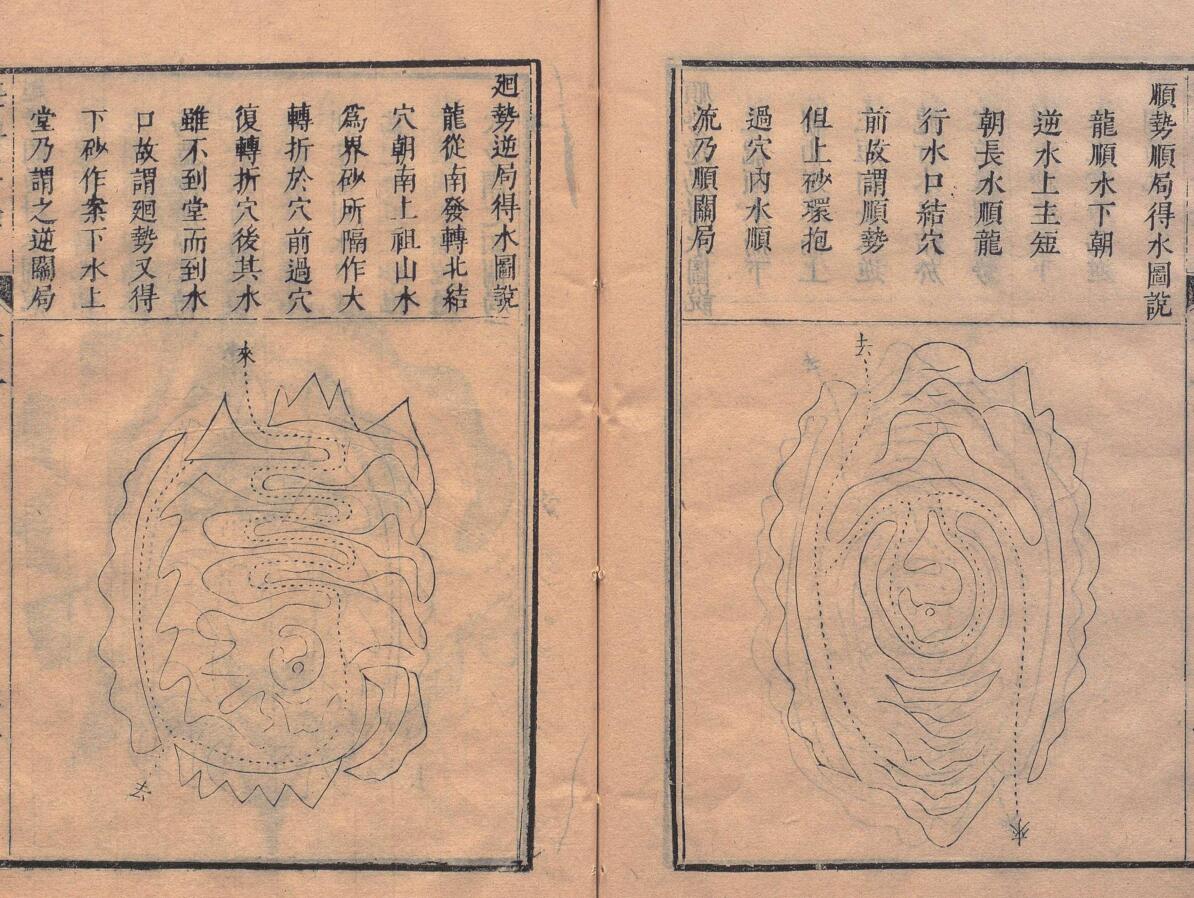 順勢順局得水圖說
龍順水下朝
逆水上主短
朝長水順龍
行水口結穴
前故謂順勢
但上砂環抱
過穴內水順
流乃順關局
去
來
廻勢逆局得水圖說
龍從南發轉北結
穴朝南上祖山水
爲界砂所隔作大
轉折於穴前過穴
復轉折穴後其水
雖不到堂而到水
口故謂廻勢又得
下砂作案下水上
堂乃謂之逆關局
來
去